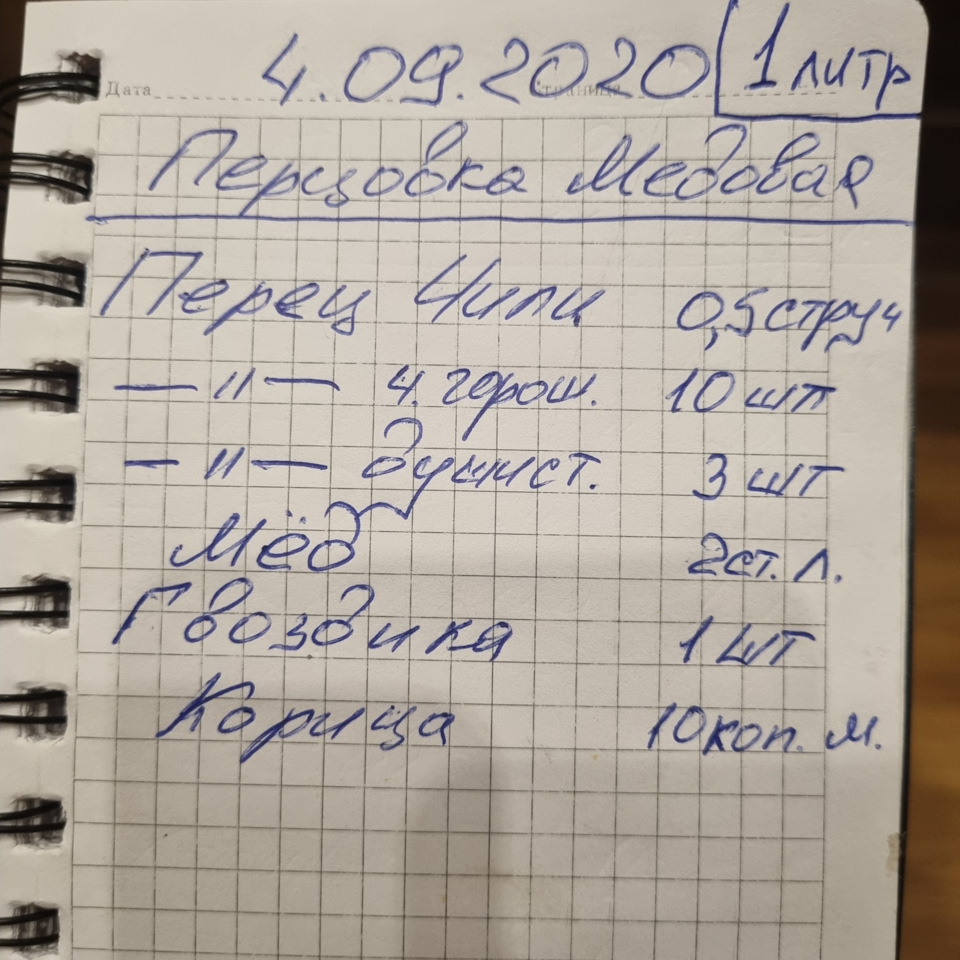 Дата 4.09.2020 Страница 1 литр
Перцовка Медовая
Перец Чили 0,5 струч
— " — ч. горош. 10 шт
— " — душист. 3 шт
Мёд 2 ст. л.
Гвоздика 1 шт
Корица 10 коп. м.